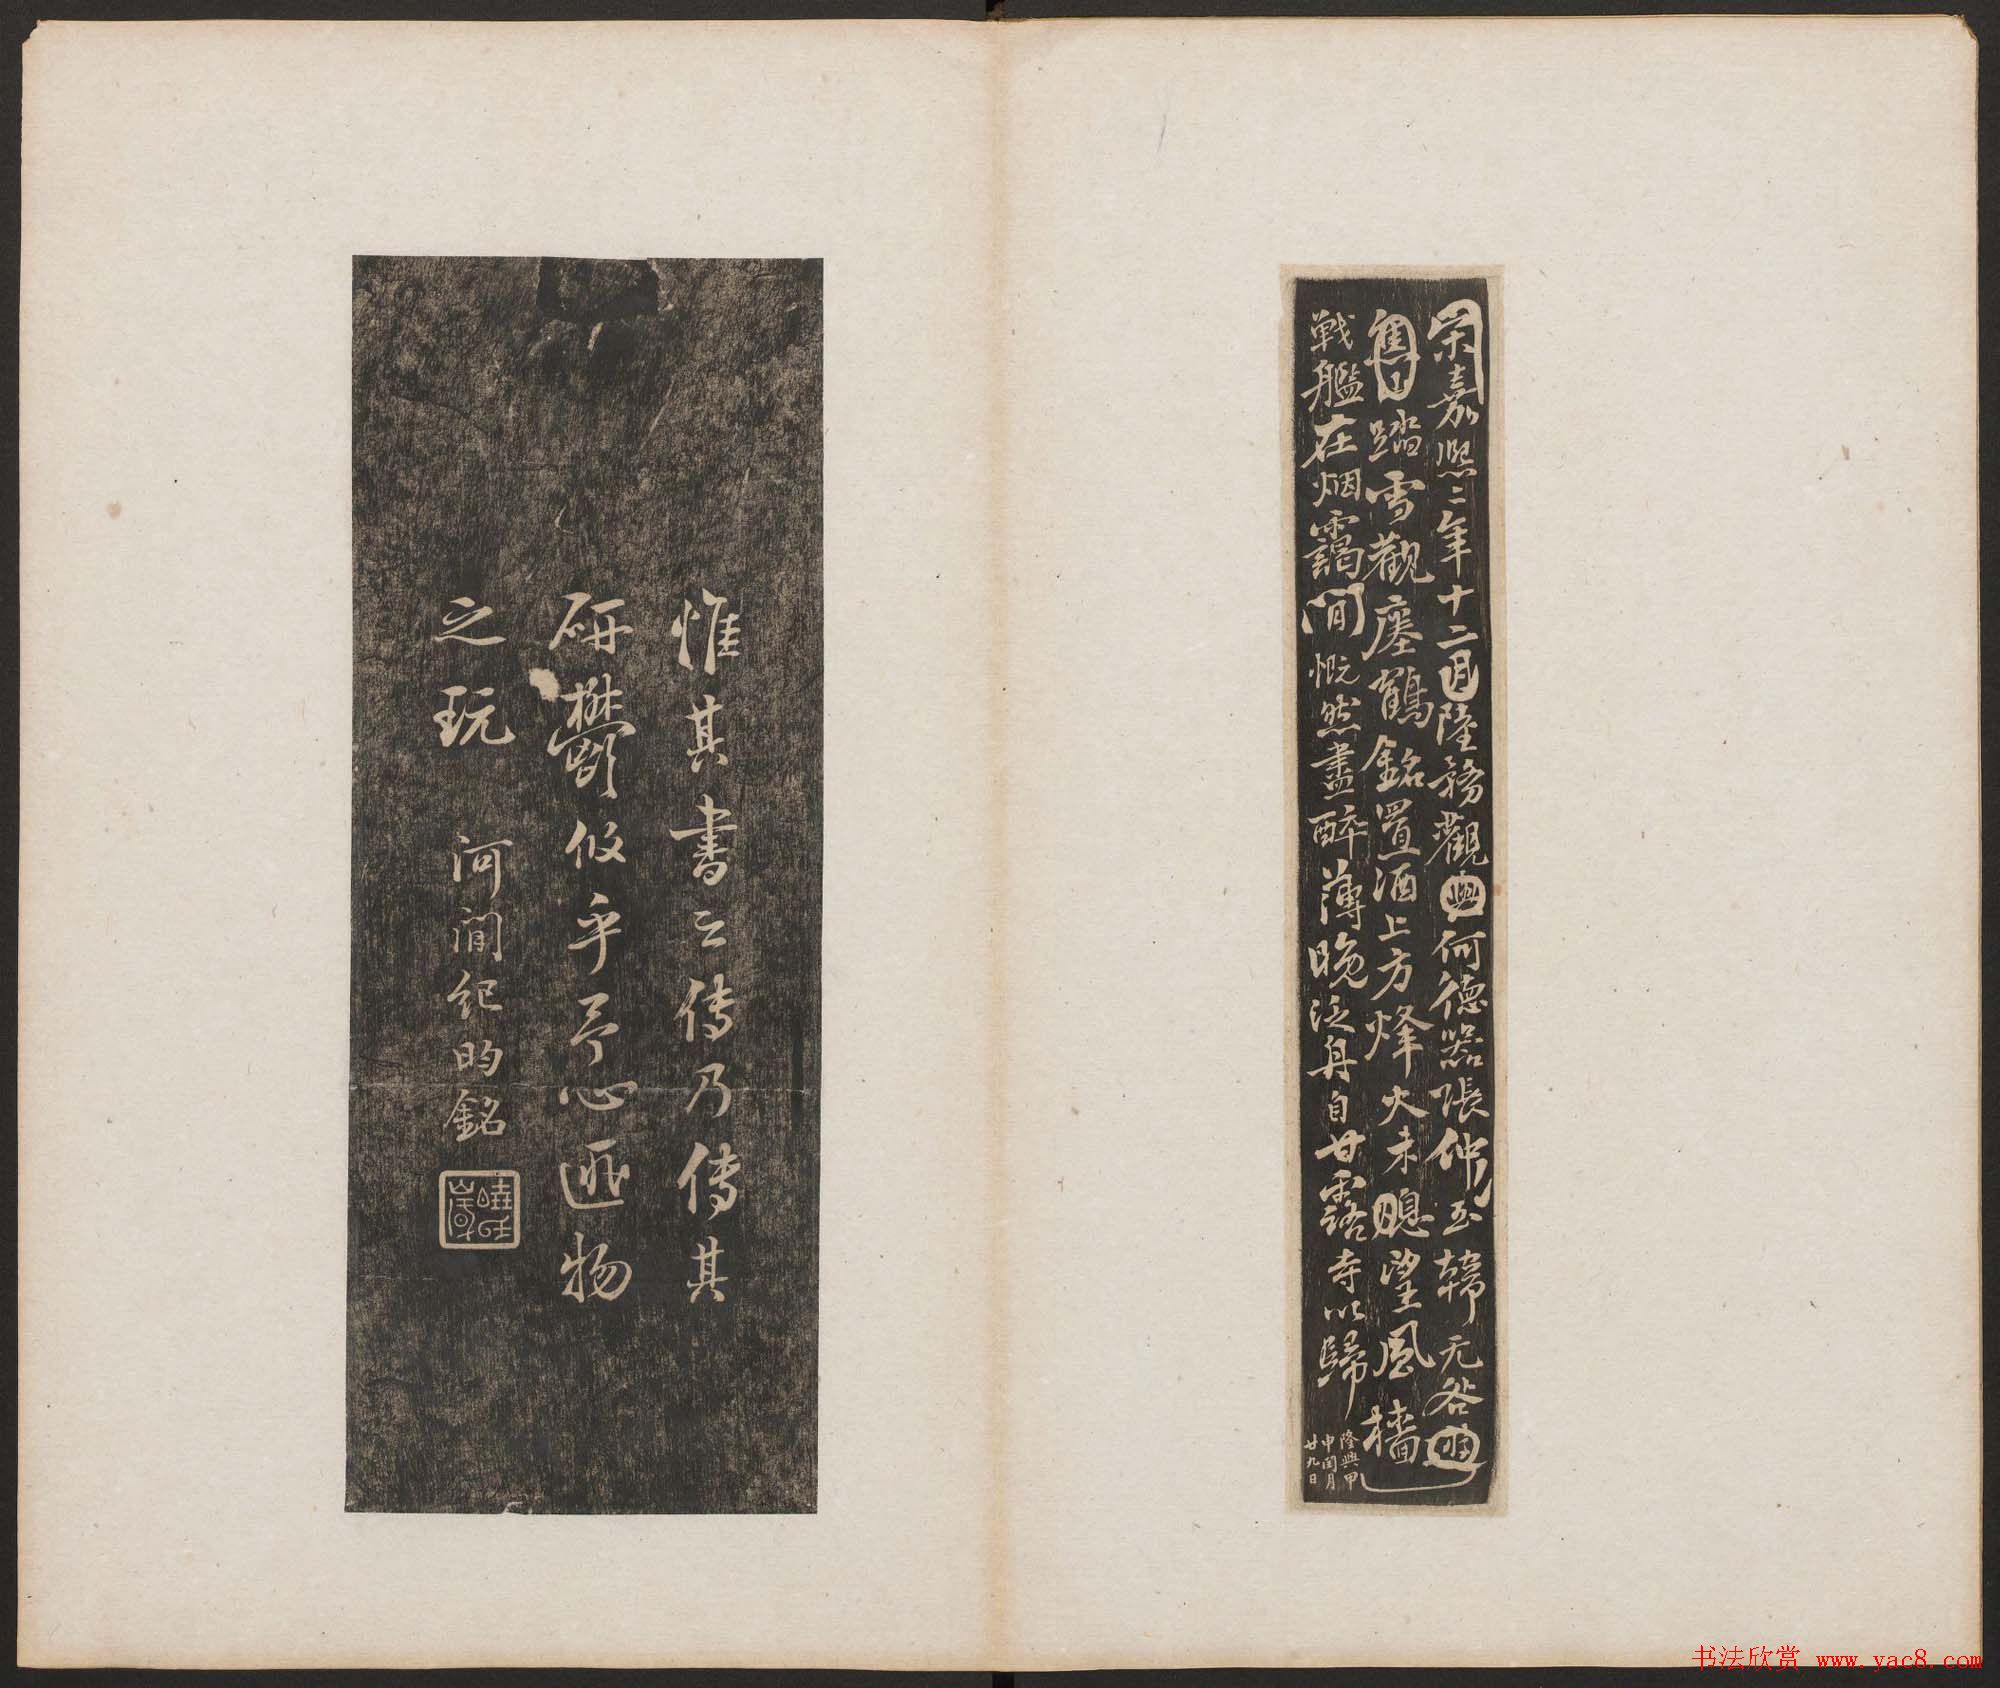 宋嘉熙二年十二月陸務觀與何德器張仲玉韓无咎游
焦山踏雪觀瘞鶴銘置酒上方烽火未熄望風檣
戰艦在烟靄間慨然盡醉薄晚泛舟自甘露寺以歸
隆興甲
申閏月
廿九日
惟其書之傳乃傳其
研鬱攸乎予心匪物
之玩 河間紀昀銘
书法欣赏 www.yac8.com